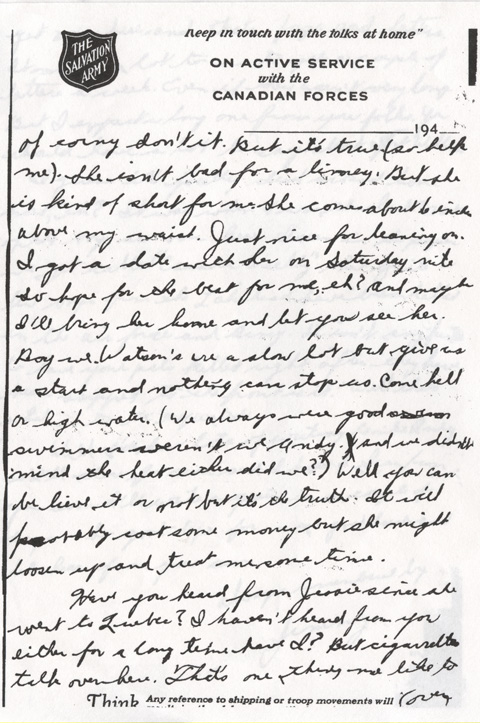 Keep in touch with the folks at home"
THE
SALVATION
ARMY
ON ACTIVE SERVICE
with the
CANADIAN FORCES
194
of corny don't it. But it's true (so help
me). She isn't bad for a limey. But she
is kind of short for me. She comes about 6 inches
above my waist. Just nice for leaning on.
I got a date with her on Saturday nite
so hope for the best for me, eh? and maybe
I'll bring her home and let you see her.
Boy we Watson's are a slow lot but give us
a start and nothing can stop us. Come hell
or high water. (We always were good
swimmers weren't we Andy) (and we didn't
mind the heat either did we?) Well you can
believe it or not but it's the truth. It will
probably cost some money but she might
loosen up and treat me some time.
Have you heard from Jessie since she
went to Quebec? I haven't heard from you
either for a long time have I? But cigarettes
talk over here. That's one thing me like to
Think Any reference to shipping or troop movements will (over